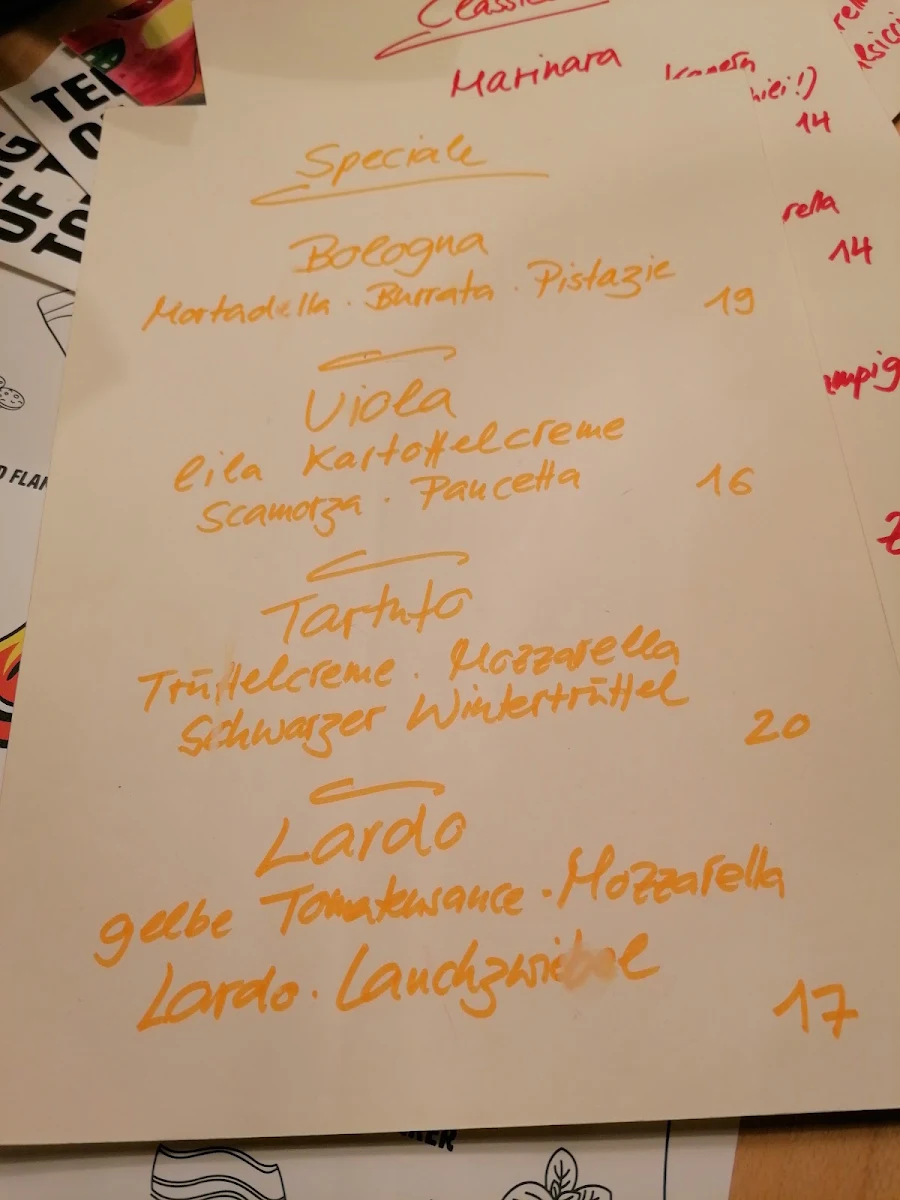 Classic
Marinara
14
rella
14
Speciale
Bologna
Mortadella · Burrata · Pistazie
19
Viola
lila Kartoffelcreme
Scamorza · Pancetta
16
Tartufo
Trüffelcreme · Mozzarella
Schwarzer Wintertrüffel
20
Lardo
gelbe Tomatensauce · Mozzarella
Lardo · Lauchzwiebel
17
OF